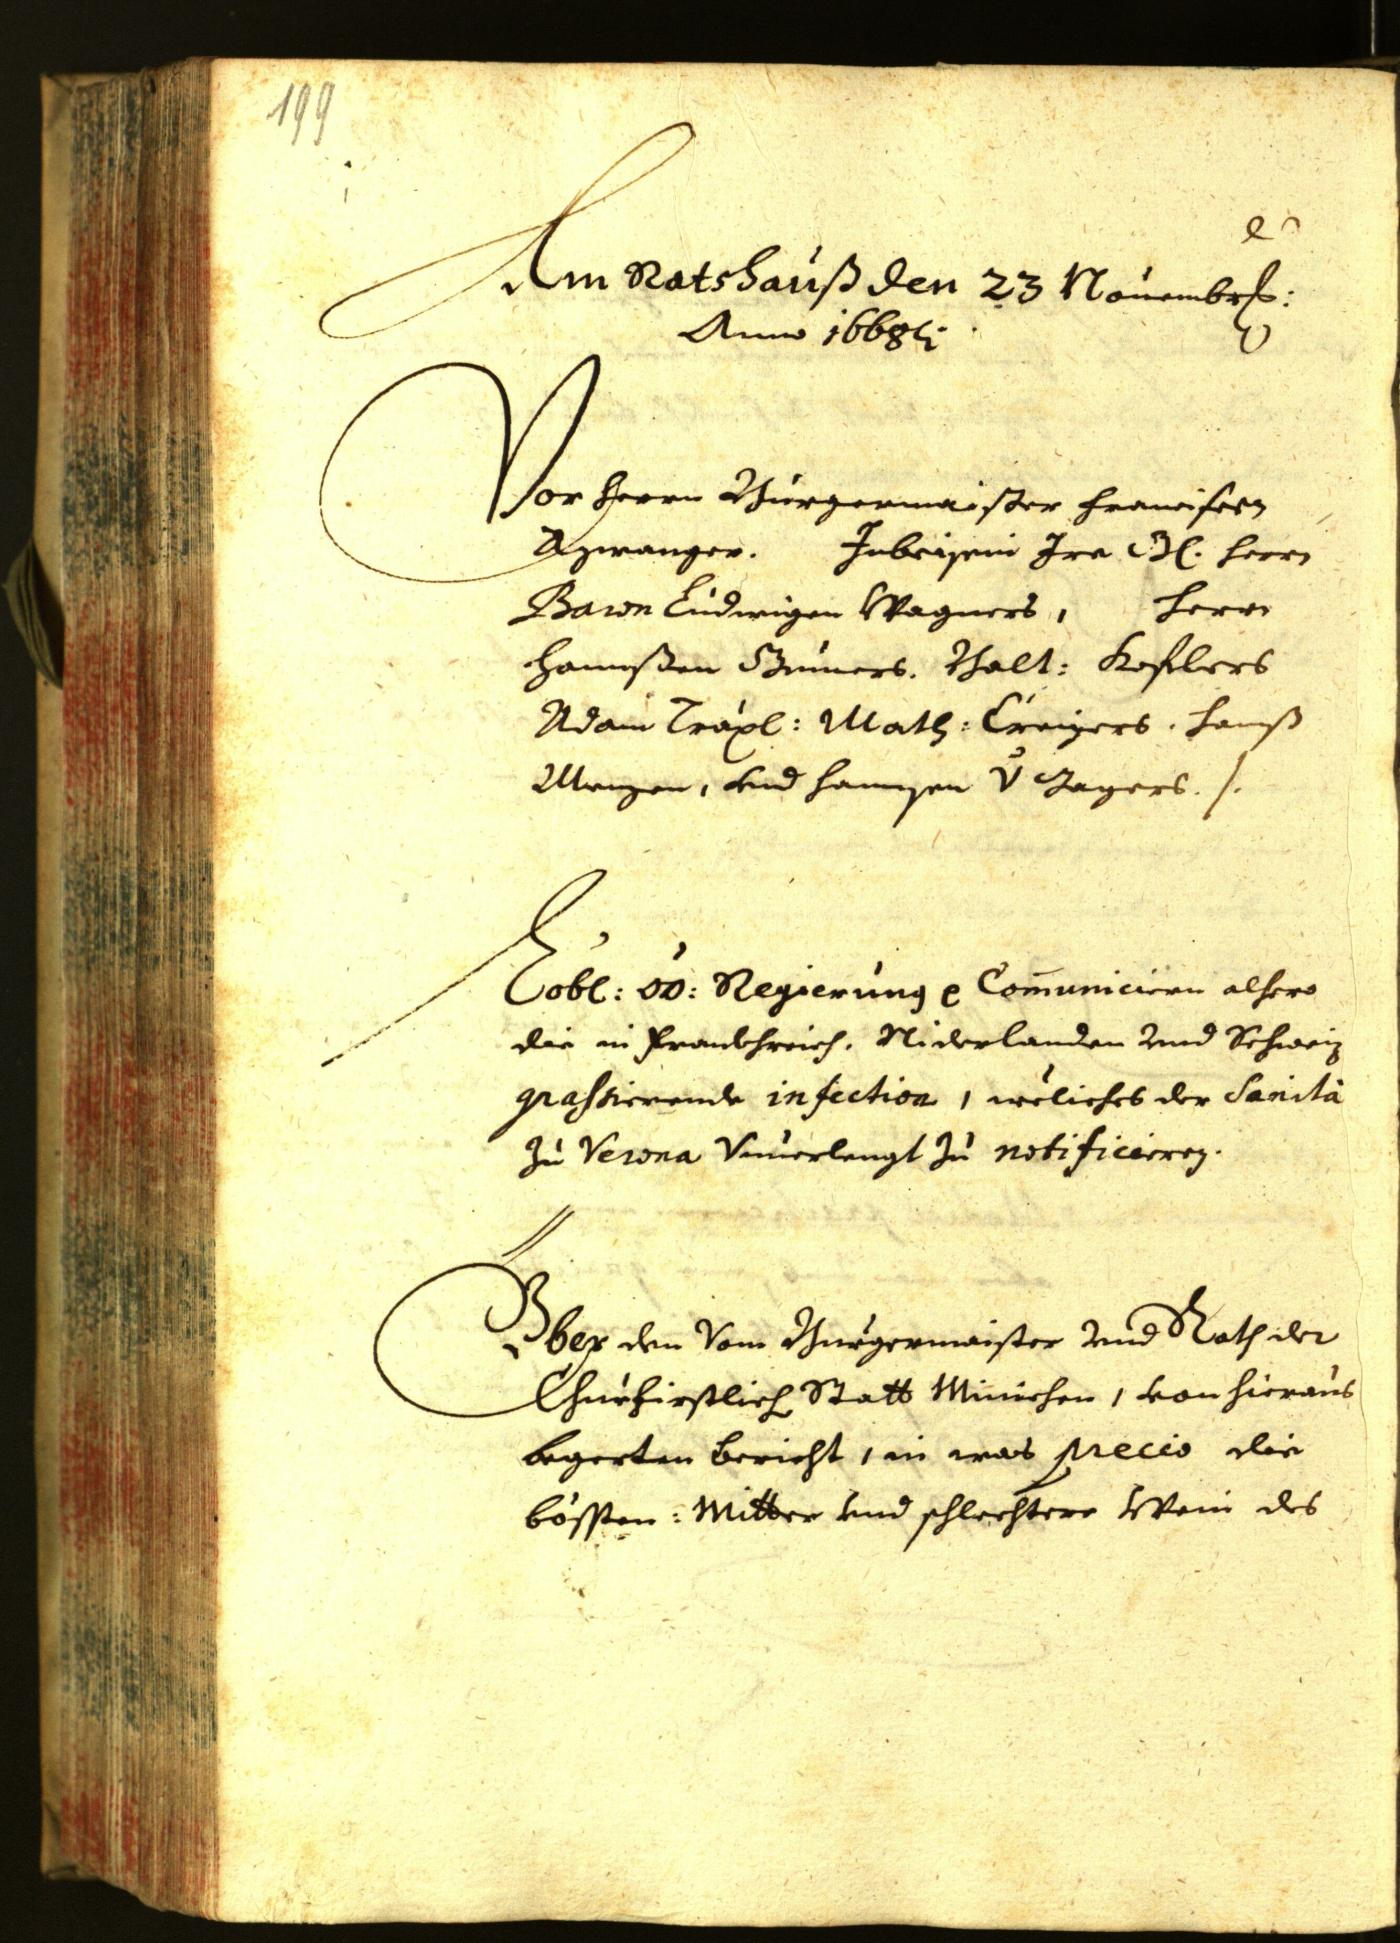 199
Am Ratshauß den 23 Nouembris:
Anno 1668
Vor Herrn Burgermaister Francisen
Azwanger. Inbeisein Ire Herrn
Baron Ludwigen Wagners, Herrn
Hannßen Gumers. Valt: Koflers
Adam Träxl: Math: Creizers. Hanß
Menzen, vnd Hannsen Jagers. /.
Lobl: OÖ: Regierung Com̄uniciern alhero
die in Frankhreich, Niderlanden vnd Schweiz
grassierende infection, welches der Sanità
zu Verona Vnuerlengt zu notificieren.
Yber den vom Burgermaister vnd Rath der
Churfirstlich Statt Minichen, von hieraus
begerten bericht, in was precio die
bössten: Mitter vnd schlechtere Wein des